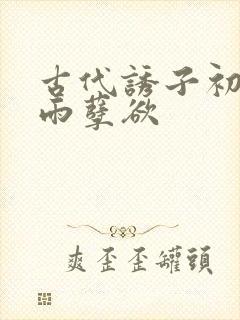 古代誘子初
雨孽欲
爽歪歪罐頭